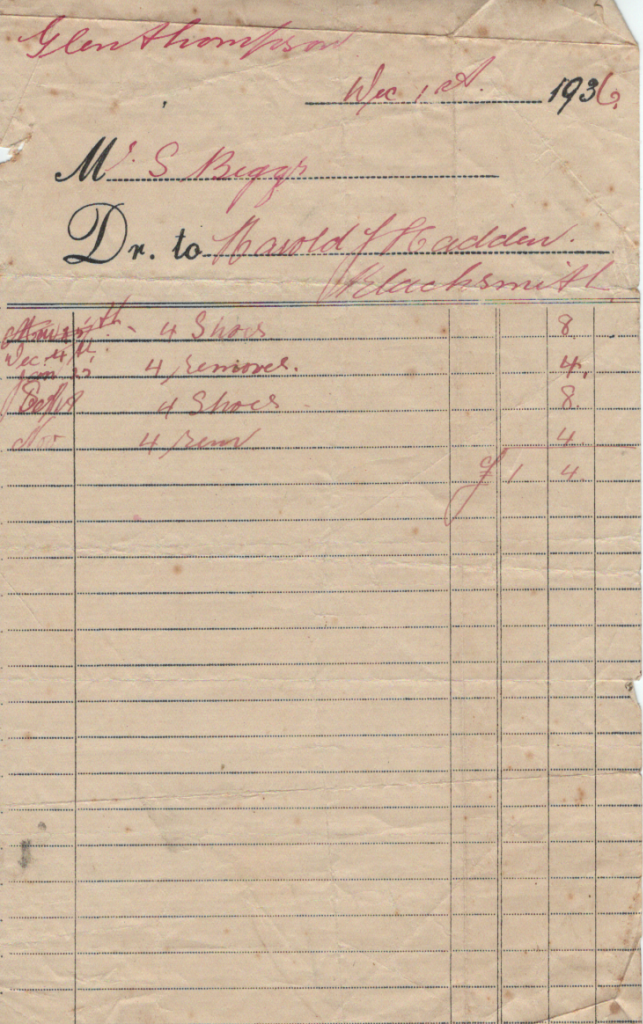 Glenthompson
Dec 1st. 1936.
Mr. S Beggs
Dr. to Harold J Hadden.
Blacksmith
4 Shoes 8.
Dec. 4th. 4 removes. 4.
4 Shoes 8.
Nov 4 rem 4.
£ 1 4.